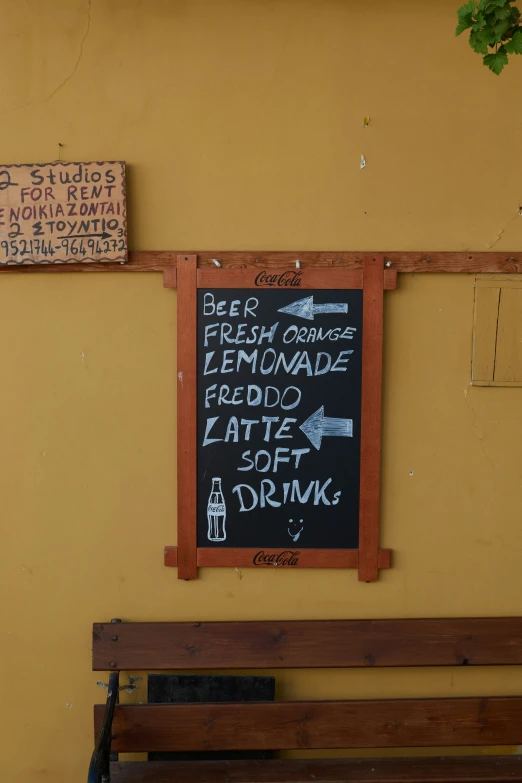 2 Studios
FOR RENT
ENOIKIAZONTAI
2 ΣTOYNTIO
952174 - 9649427
Coca-Cola
BEER
FRESH ORANGE
LEMONADE
FREDDO
LATTE
SOFT
DRINKs
Coca-Cola
Coca-Cola